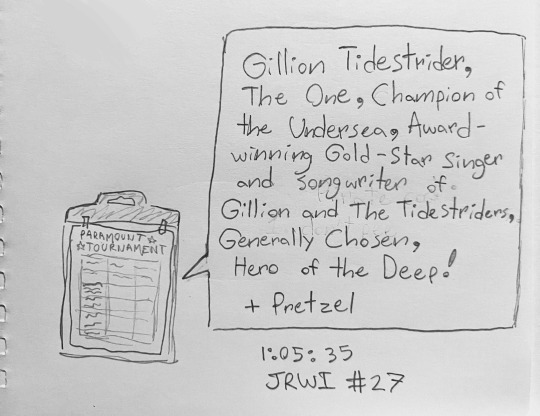 Gillion Tidestrider,
The One, Champion of
the Undersea, Award-
winning Gold-Star Singer
and songwriter of
Gillion and The Tidestriders,
Generally Chosen,
Hero of the Deep!
+ Pretzel
PARAMOUNT
TOURNAMENT
1:05:35
JRWI #27